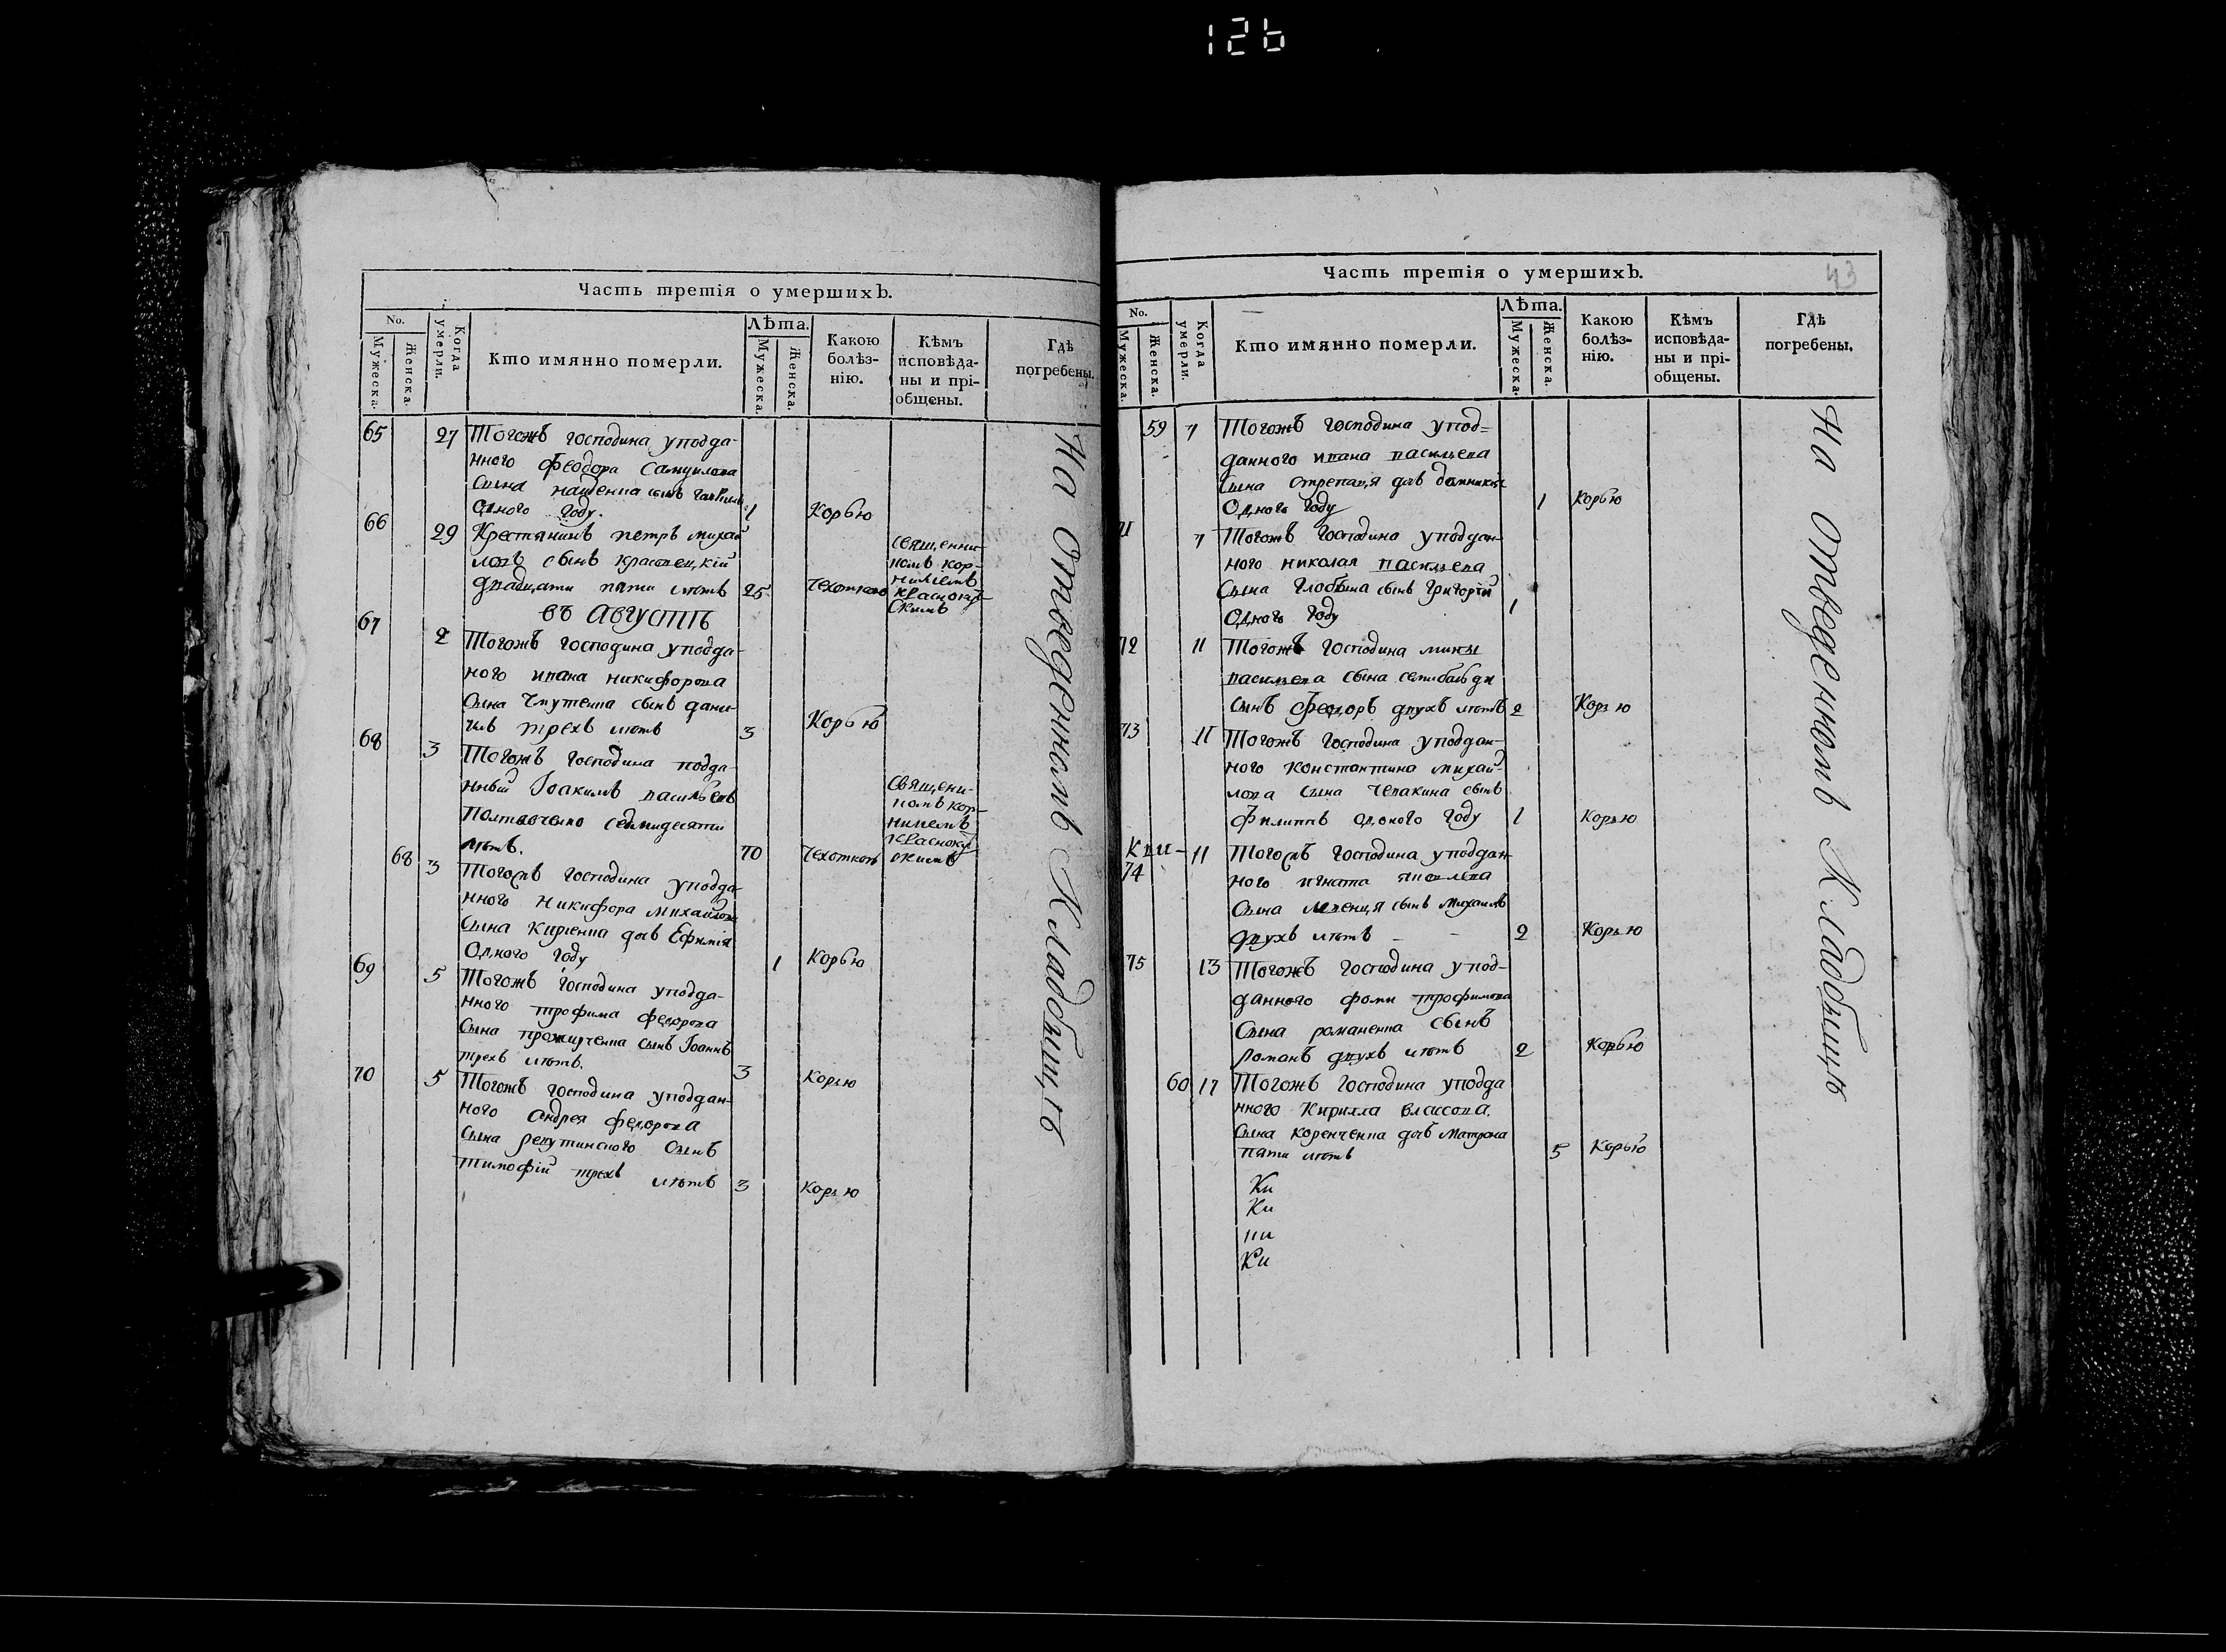 126
Часть третія о умершихъ.
No.
Мужеска.
Женска.
Когда умерли.
Кто имянно померли.
Лѣта.
Мужеска.
Женска.
Какою болѣз-
нію.
Кѣмъ
исповѣда-
ны и прі-
общены.
Гдѣ
погребены.
65 27 Тогожъ господина уподда-
нного Феодора Самуилова
Сына сынъ
одного году. 1 Корью
66 29 Крестянинъ петръ михай
ловъ сынъ
двадцати пяти лѣтъ 25 Чехоткою
священни-
комъ кор-
нилиемъ
краснокут-
скимъ
въ АВГУСТѢ
67 2 Тогожъ господина уподда-
ного ивана никифорова
Сына сынъ дани-
илъ трехъ лѣтъ 3 Корью
68 3 Тогожъ господина подда-
нный Іоакимъ васильевъ
Полтавченко седмидесяти
лѣтъ. 70 Чехоткою
священи-
комъ кор-
нилиемъ
краснокут-
скимъ
68 3 Тогожъ господина уподда-
нного Никифора Михайлова
Сына киріенка дочь Ефимія
Одного году 1 Корью
69 5 Тогожъ господина уподда-
нного трофима федорова
Сына сынъ Іоаннъ
трехъ лѣтъ. 3 Корью
70 5 Тогожъ господина уподдан-
ного Андрея федорова
Сына сынъ
тимофій трехъ лѣтъ 3 Корью
На отведенномъ Кладбищѣ
43
Часть третія о умершихъ.
No.
Мужеска.
Женска.
Когда умерли.
Кто имянно померли.
Лѣта.
Мужеска.
Женска.
Какою
болѣз-
нію.
Кѣмъ
исповѣда-
ны и прі-
общены.
Гдѣ
погребены.
59 7 Тогожъ господина упод-
данного ивана васильева
Сына дочь домникія
Одного году 1 Корью
7 Тогожъ господина уподдан-
ного николая васильева
Сына сынъ Григорій
Одного году 1
72 11 Тогожъ господина мины
васильева сына
сынъ Федоръ двухъ лѣтъ 2 Корью
73 11 Тогожъ господина уподдан-
ного константина михай-
лова сына чепакина сынъ
филиппъ одного году 1 Корью
74 11 Тогожъ господина уподдан-
ного игната
Сына сынъ Михаилъ
двухъ лѣтъ - - 2 Корью
75 13 Тогожъ господина упод-
данного фоми трофимова
Сына романенка сынъ
романъ двухъ лѣтъ 2 Корью
60 17 Тогожъ господина уподда
нного Кирилла власова
Сына коренченка дочь Матрона
пяти лѣтъ 5 Корью
Ки
Ки
Ки
На отведенномъ Кладбищѣ